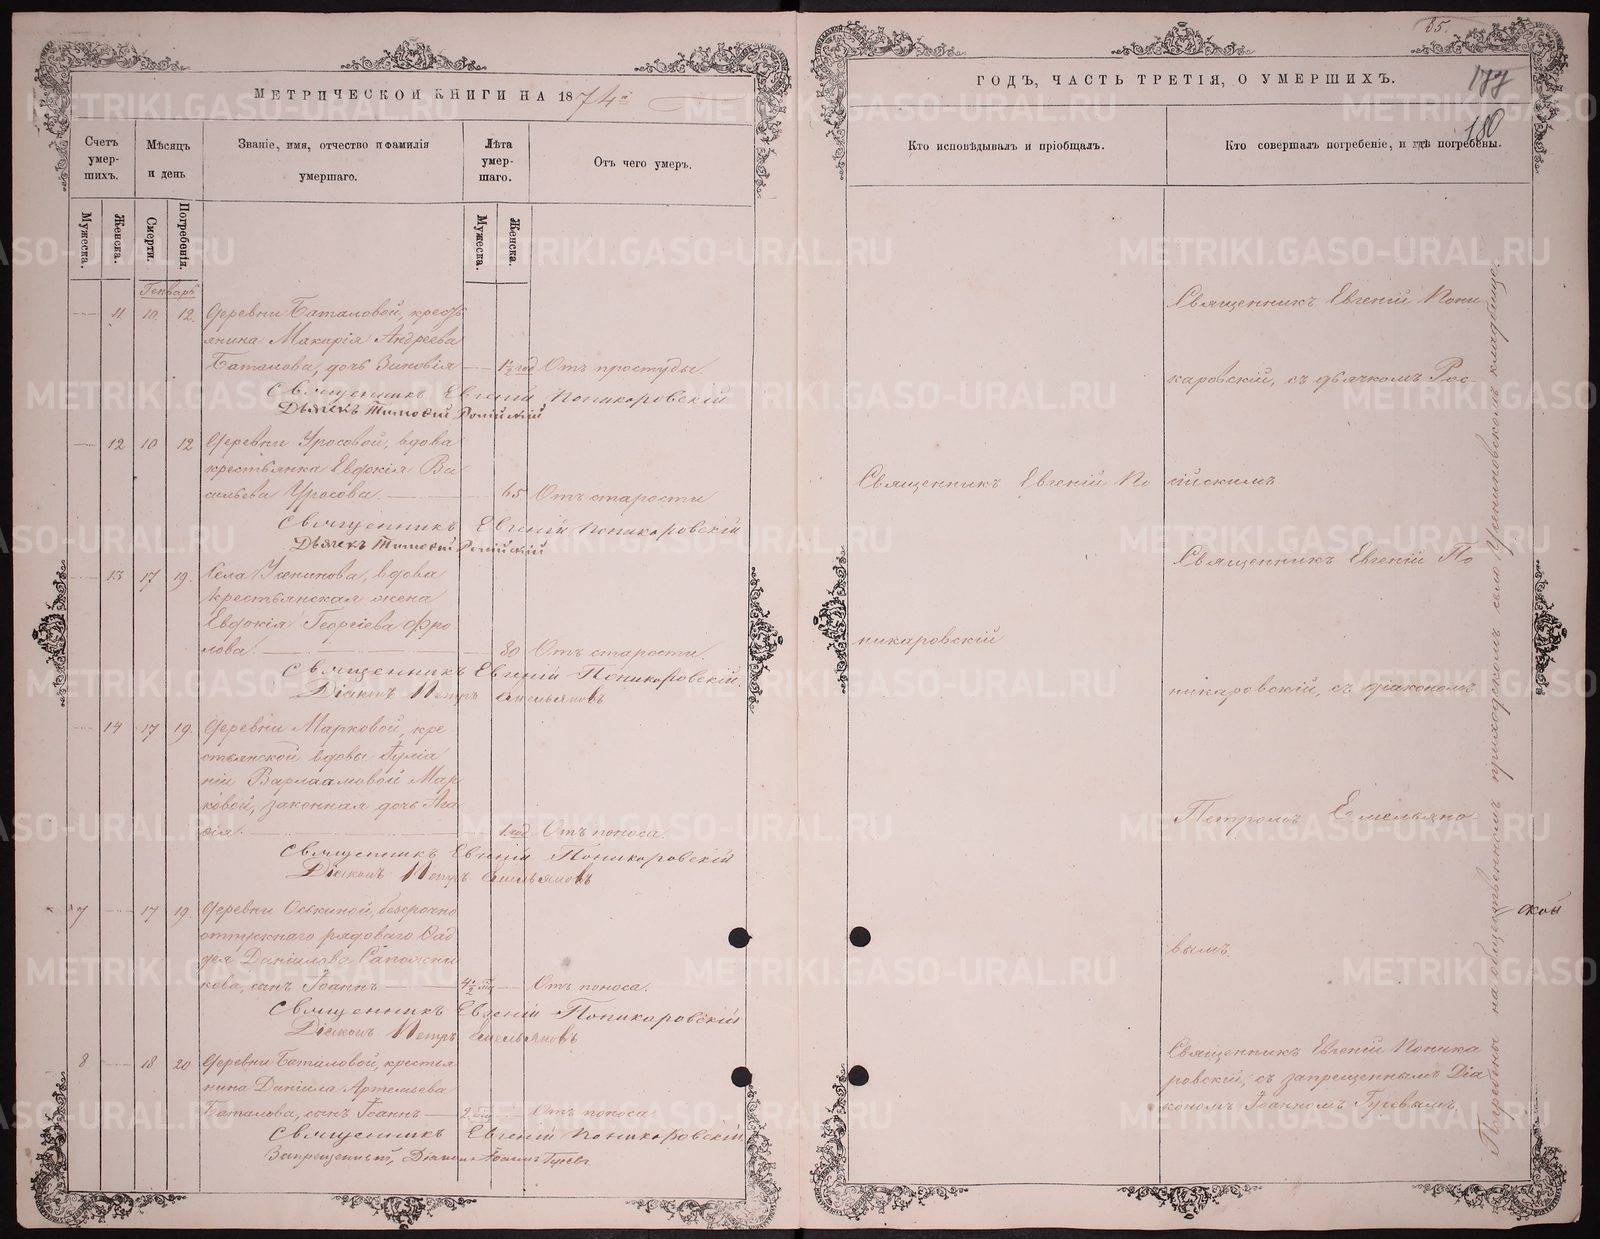 МЕТРИЧЕСКОЙ КНИГИ НА 1874й
Счетъ умер-шихъ.
Мѣсяцъ и день
Званіе, имя, отчество и фамилія умершаго.
Лѣта умер-шаго.
Отъ чего умеръ.
Мужеска.
Женска.
Смерти.
Погребенія.
Мужеска.
Женска.
Генварь
11 10 12 Деревни Баталовой, кресть
янина Макарія Андреева
Баталова, дочь Зиновія 1½ год Отъ простуды.
Священникъ Евгеній Поникаровскій
Дьячекъ Тимофей
12 10 12 Деревни Уросовой, вдова
крестьянка Евдокія Ва
сильева Уросова. 65 Отъ старости
Священникъ Евгеній Поникаровскій
Дьячекъ Тимофей
13 17 19. Села Усениновa, вдова
крестьянская жена
Евдокія Георгіева Фро
лова. 80 Отъ старости.
Священникъ Евгеній Поникаровскій.
Діаконъ Петръ Емельяновъ
14 17 19. Деревни Марковой, кре
стьянской вдовы Іуліа
ніи Варлаамовой Мар
ковой, законная дочь Ага
фія. 1. год Отъ поноса.
Священникъ Евгеній Поникаровскій
Діаконъ Петръ Емельяновъ
7 17 19. Деревни Оськиной, безсрочно
отпускнаго рядоваго Фад
дея Даніилова Сапожни
кова, сынъ Іоаннъ 4½ мц Отъ поноса.
Священникъ Евгеній Поникаровскій
Діаконъ Петръ Емельяновъ
8 18 20 Деревни Баталовой, крестья
нина Даніила Артемьева
Баталова, сынъ Іоаннъ 2 Отъ поноса
Священникъ Евгеній Поникаровскій
Запрещенный, Діаконъ Іоаннъ Гуревъ
85.
177
180
ГОДЪ, ЧАСТЬ ТРЕТІЯ, О УМЕРШИХЪ.
Кто исповѣдывалъ и пріобщалъ.
Кто совершалъ погребеніе, и гдѣ погребены.
Священникъ Евгеній Пони
каровскій, съ дьячкомъ Рос
Священникъ Евгеній По
сійскимъ
Священникъ Евгеній По
никаровскій
никаровскій, съ діакономъ
Петромъ Емельяно
ской
вымъ
Священникъ Евгеній Поника
ровскій, съ запрещеннымъ Діа
кономъ Іоанномъ Гуревымъ
Погребены на общественномъ приходскомъ села Усениновскомъ кладбище.
METRIKI.GASO-URAL.RU